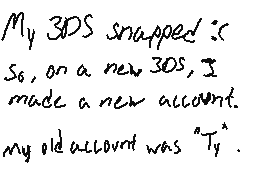 My 3DS snapped :(
So, on a new 3DS, I
made a new account.
My old account was "Ty".